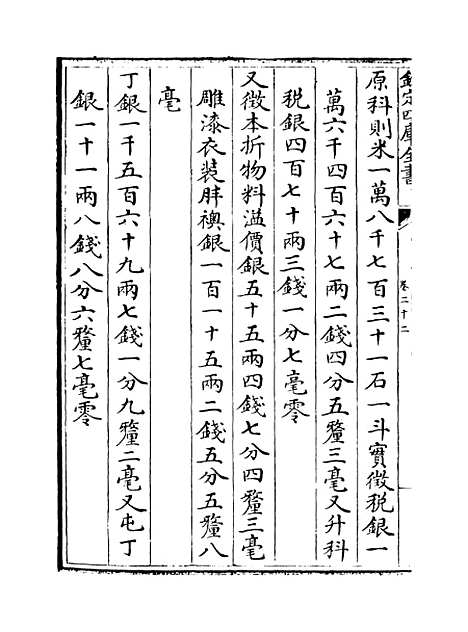 欽定四庫全書
卷二十二
原科則米一萬八千七百三十一石一斗實徵税銀一
萬六千四百六十七兩二錢四分五釐三毫又升科
税銀四百七十兩三錢一分七毫零
又徵本折物料溢價銀五十五兩四錢七分四釐三毫
雕漆衣装胖襖銀一百一十五兩二錢五分五釐八
毫
丁銀一千五百六十九兩七錢一分九釐二毫又屯丁
銀一十一兩八錢八分六釐七毫零